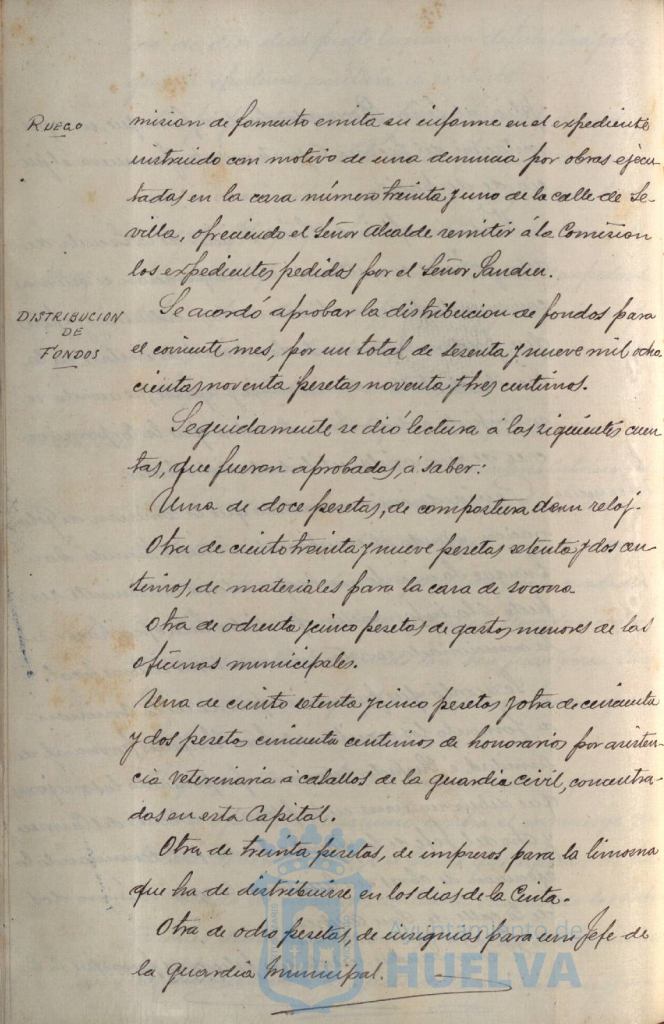 RUEGO
mision de fomento emita su informe en el expediente
instruido con motivo de una denuncia por obras ejecu-
tadas en la casa número treinta y uno de la calle de Se-
villa, ofreciendo el Señor Alcalde remitir á la Comision
los expedientes pedidos por el Señor
DISTRIBUCION
DE
FONDOS
Se acordó aprobar la distribucion de fondos para
el corriente mes, por un total de sesenta y nueve mil ocho
cientas noventa pesetas noventa y tres centimos.
Seguidamente se dió lectura á las siguientes cuen
tas, que fueron aprobadas, á saber:
Una de doce pesetas, de compostura de un reloj.
Otra de ciento treinta y nueve pesetas setenta y dos cen-
timos, de materiales para la casa de socorro.
Otra de ochenta y cinco pesetas de gastos menores de las
oficinas municipales.
Una de ciento setenta y cinco pesetas y otra de cincuenta
y dos pesetas cincuenta centimos de honorarios por asisten-
cia veterinaria á caballos de la guardia civil, concentra-
dos en esta Capital.
Otra de treinta pesetas, de impresos para la limosna
que ha de distribuirse en los dias de la Cinta.
Otra de ocho pesetas, de insignias para un Jefe de
la guardia municipal.
Ayuntamiento de
HUELVA